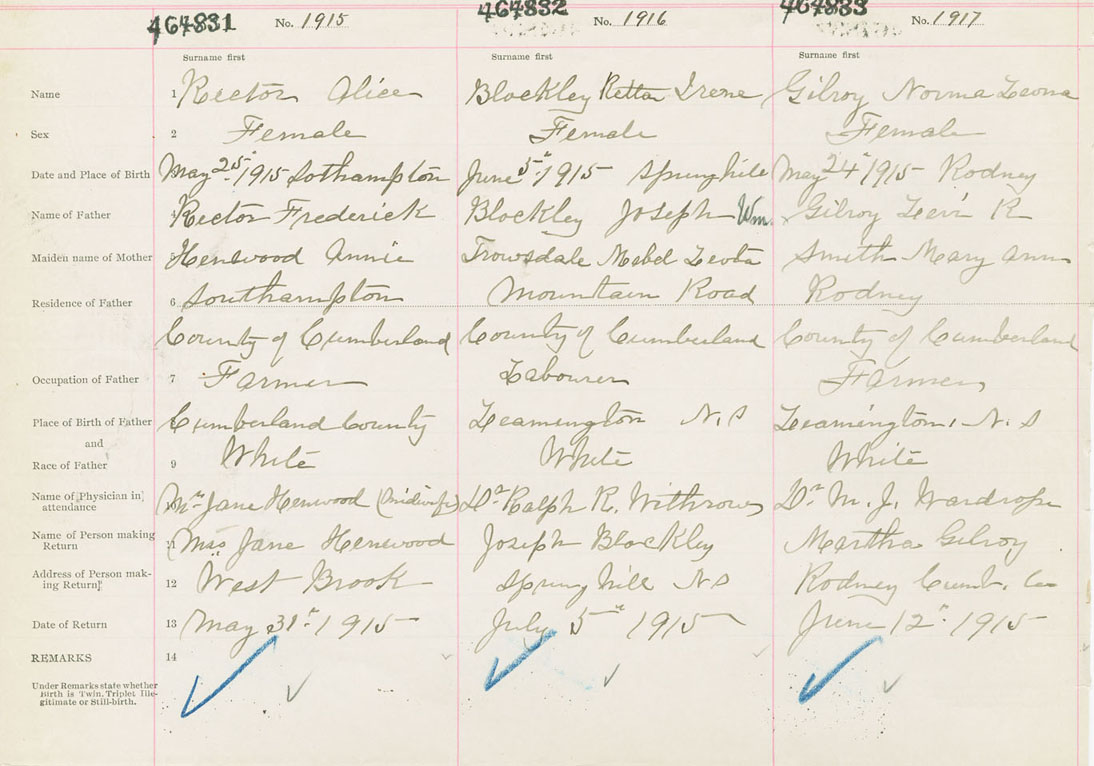 464831 No. 1915 464832 No. 1916 464833 No. 1917
Surname first Surname first Surname first
Name 1 Rector Alice Blockley Retta Irene Gilroy Norma Leona
Sex 2 Female Female Female
Date and Place of Birth May 25" 1915 Sothampton June 5" 1915 Springhill May 24" 1915 Rodney
Name of Father Rector Frederick Blockley Joseph Wm. Gilroy Levi R
Maiden name of Mother Henwood Annie Trowsdale Mabel Leota Smith Mary Ann
Residence of Father 6 Southampton Mountain Road Rodney
County of Cumberland County of Cumberland County of Cumberland
Occupation of Father 7 Farmer Labourer Farmer
Place of Birth of Father Cumberland County Leamington N.S Leamington, N.S
and
Race of Father 9 White White White
Name of Physician in attendance Mrs Jane Henwood (Midwife) Dr Ralph R. Withrow Dr M. J. Wardrope
Name of Person making Return 11 Mrs Jane Henwood Joseph Blockley Martha Gilroy
Address of Person making Return 12 West Brook Spring hill NS Rodney Cumb. Co
Date of Return 13 May 31st 1915 July 5" 1915 June 12" 1915
REMARKS 14
Under Remarks state whether
Birth is Twin, Triplet Ille-
gitimate or Still-birth.